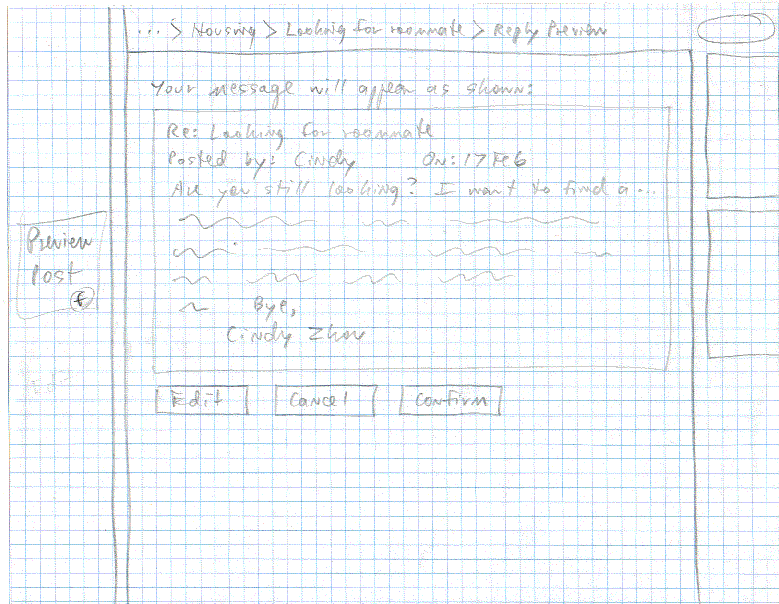 ... > Housing > Looking for roommate > Reply Preview
Your message will appear as shown:
Re: Looking for roommate
Posted by: Cindy On: 17 Feb
Are you still looking? I want to find a ...
Bye,
Cindy Zhou
Preview
Post
f
Edit
Cancel
Confirm